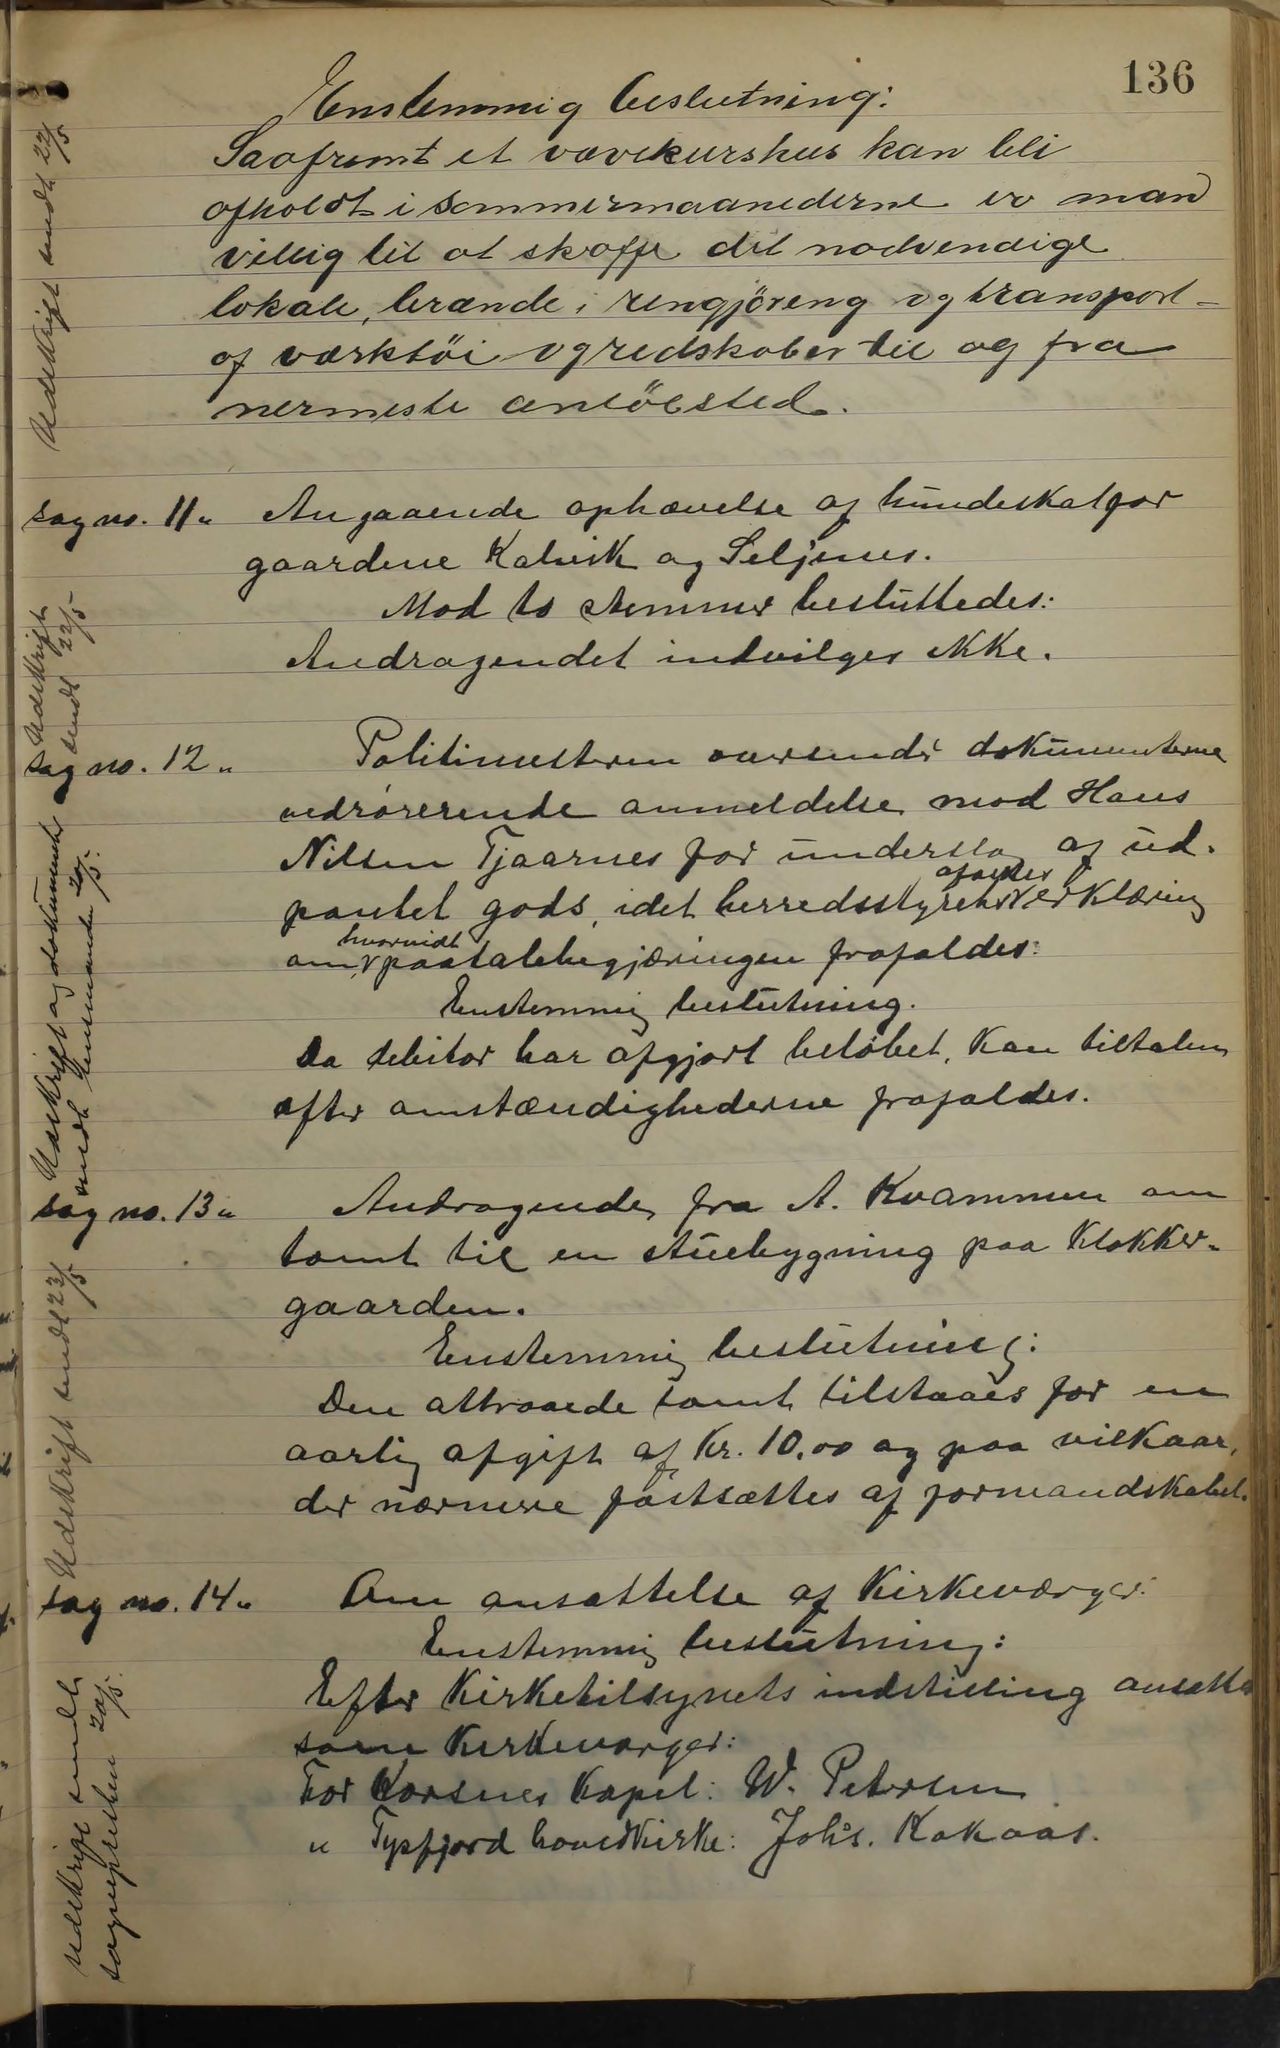 136
Enstemmig beslutning:
Saafremt et vævekurshus kan bli
afholdt i sommermaanederne er man
villig til at skaffe det nødvendige
lokale, brænde, rengjöreng og transport
af værktöi og redskaber til og fra
nermeste anlöbsted.
Udskrift sendt 22/5
sag no. 11.. Angaaende ophævelse af hundeskat for
gaardene Kalvik og Seljenes.
Mod to stemmer besluttedes:
Andragendet indvilges ikke.
Udskrift
sendt 22/5
sag no. 12.. Politimesteren oversender dokumenterne
vedrørerende anmeldelse mod Hans
Nilsen Tjaarnes for underslag af ud-
pantet gods, idet herredsstyrets erklæring
afæskes
om paatalebegjæringen frafaldes:
hvorvidt
Enstemmig beslutning.
Da debitor har afgjort beløbet, kan tiltalen
efter omstændighederne frafaldes.
Udskrift og dokumenter
sendt lensmanden 20/5.
sag no. 13.. Andragende fra A. Kvammen om
tomt til en stuebygning paa Klokker-
gaarden.
Enstemmig beslutning:
Den attraaede tomt tilstaaes for en
aarlig afgift af Kr. 10.00 og paa vilkaar,
der nærmere fastsættes af formandskabet.
Udskrift sendt 23/5
sag no. 14.. Om ansættelse af Kirkeværger.
Enstemmig beslutning:
Efter Kirketilsynets indstilling ansættes
som Kirkeværger:
For Korsnes Kapel: W. Petersen
" Tysfjord hovedkirke: Johs. Kakaas.
Udskrift sendt
sognepresten 20/5.